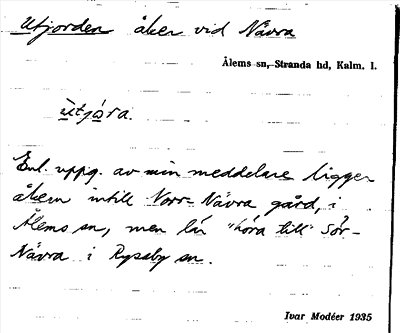 Utjorden åker vid Nävra
Ålems sn, Stranda hd, Kalm. l.
ùtjóra.
Enl. uppg. av min meddelare ligger
åkern intill Norr-Nävra gård, i
Ålems sn, men lär "höra till" Sör-
Nävra i Ryssby sn.
Ivar Modéer 1935